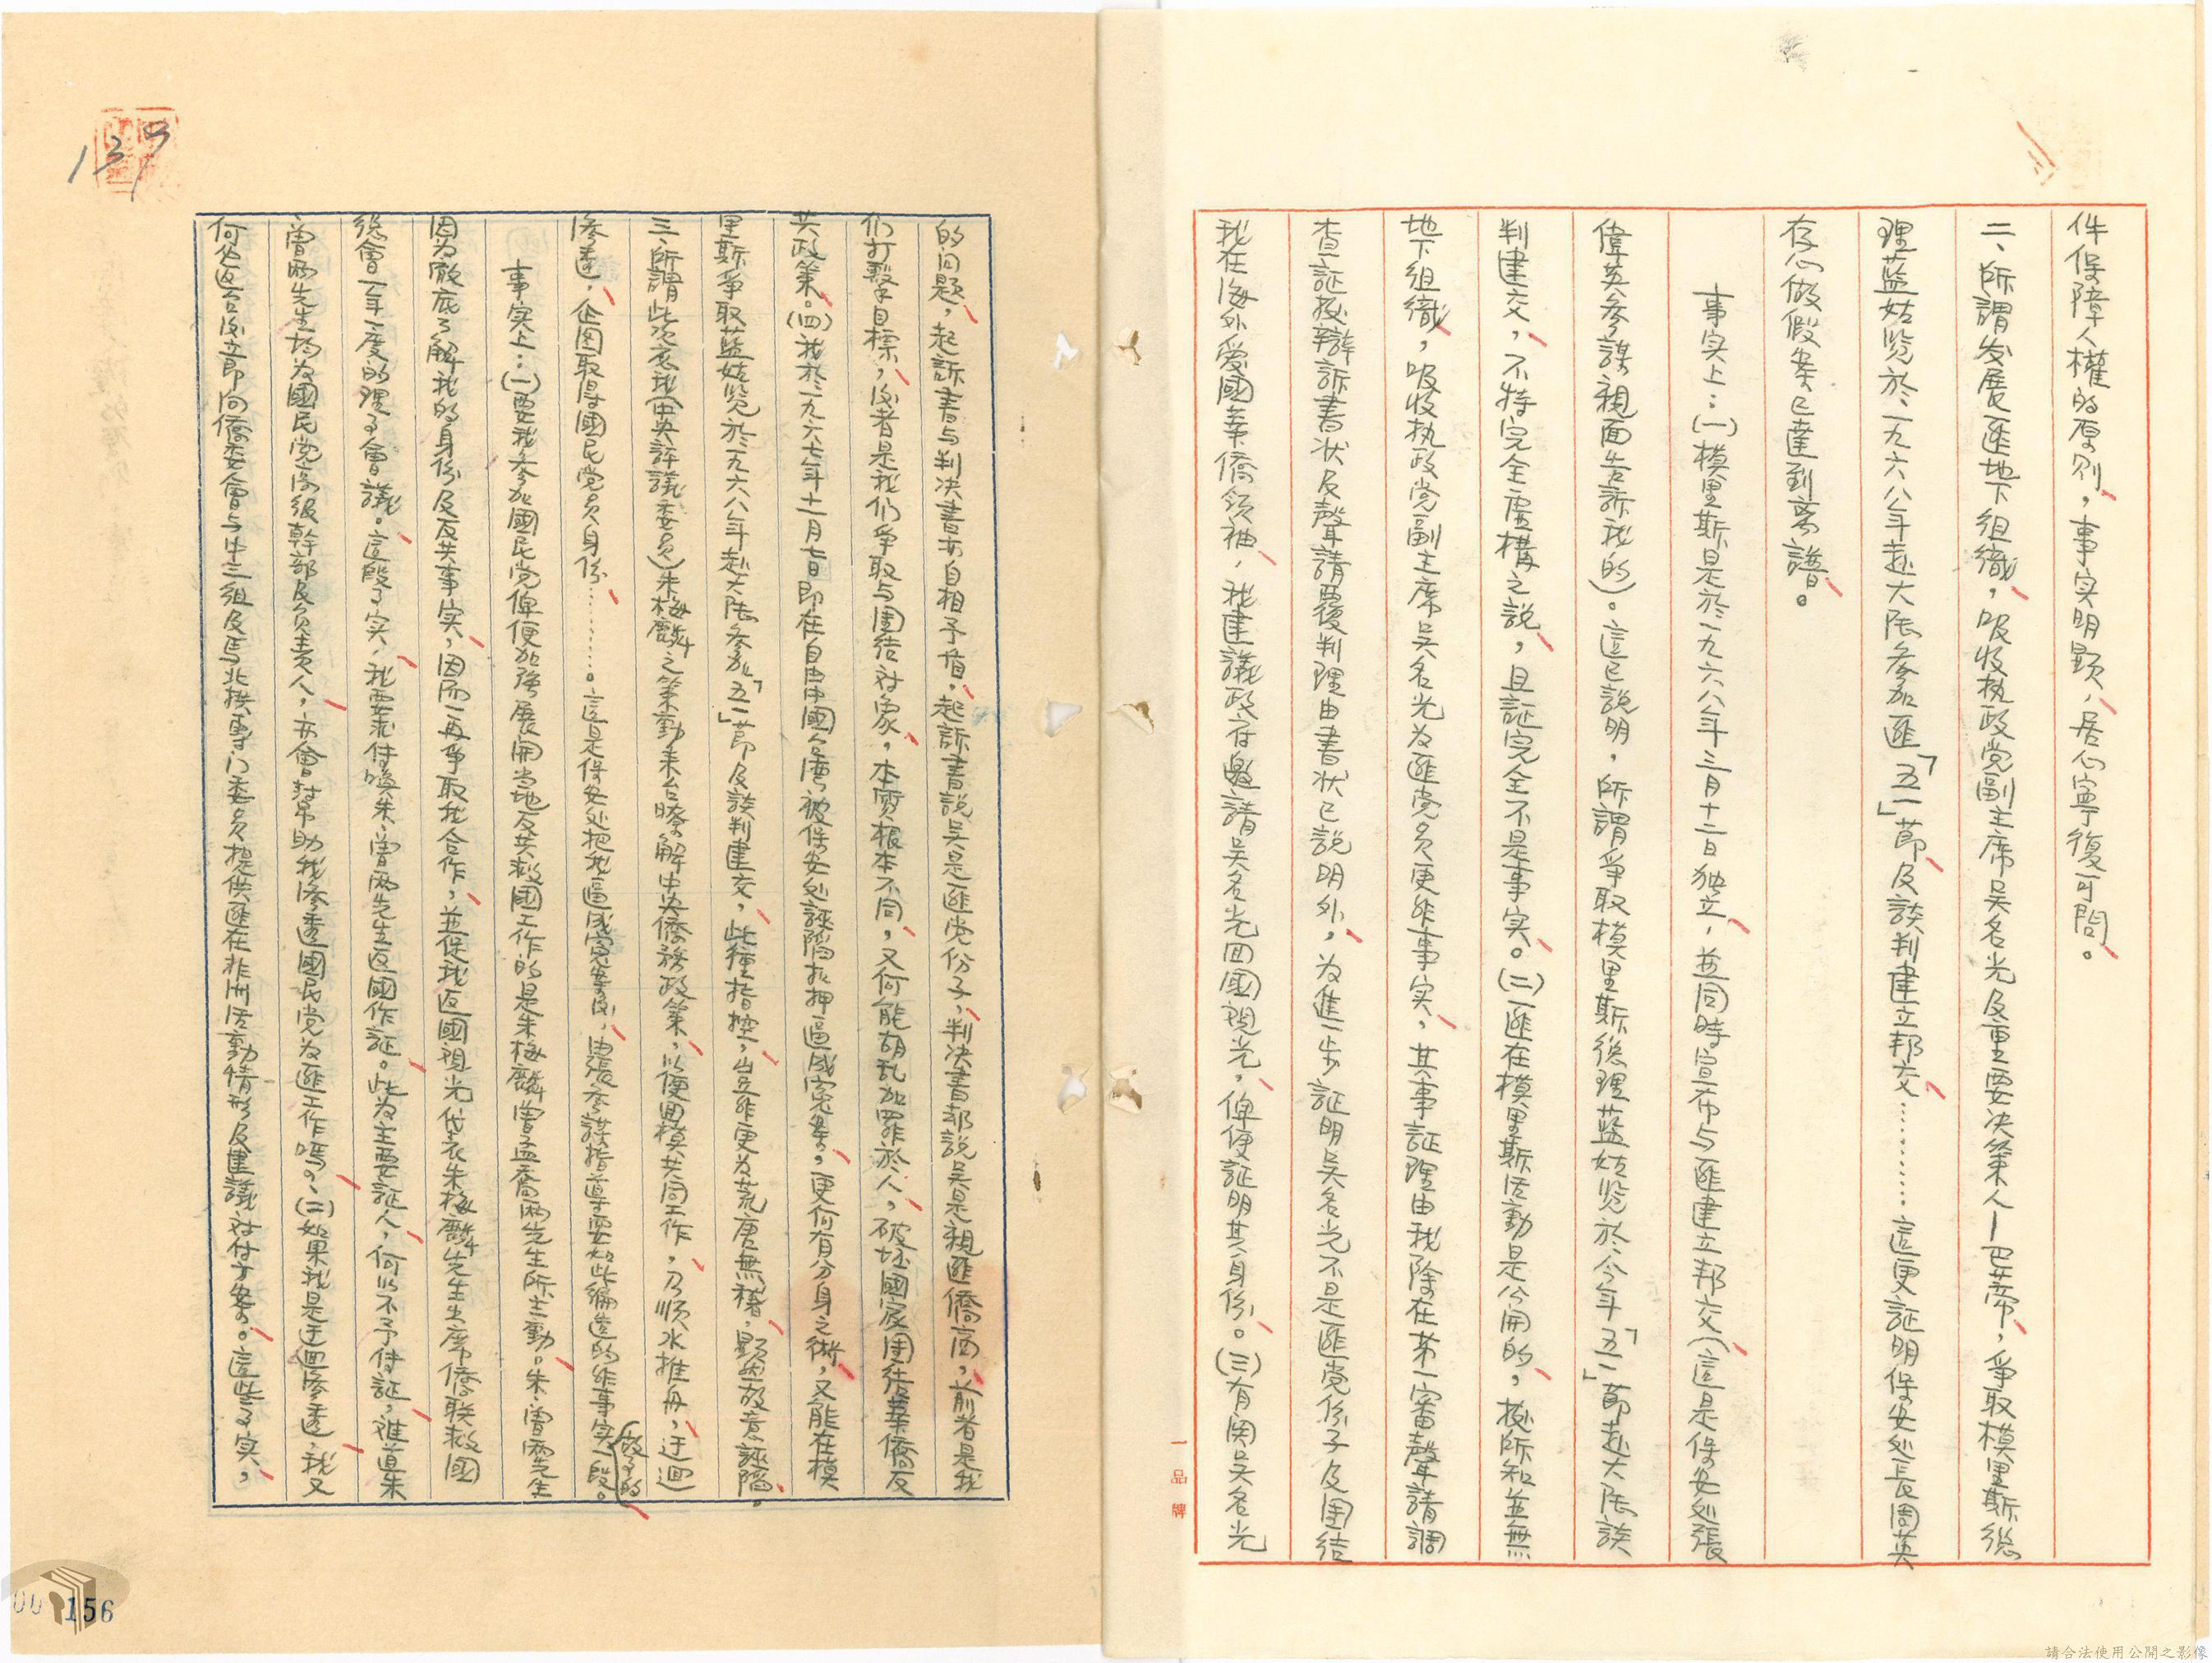 件保障人權的原則，事实明顯，居心寧復可問。
二、所謂发展匪地下組織，吸收执政党副主席吳名光及重要决策人－巴蒂，爭取模里斯總
理藍姑覧於一九六八年赴大陆參加匪「五一」節及談判建立邦交…………這更証明保安处長周英
存心做假案已達到离譜。
事实上：(一)模里斯是於一九六八年三月十二日独立，並同時宣布与匪建立邦交(這是保安处張
偉英参謀親面告訴我的)。這已說明，所謂爭取模里斯總理藍姑覧於今年「五一」節赴大陆談
判建交，不特完全虛構之說，且証完全不是事实。(二)匪在模里斯活動是公開的，據所知並無
地下組織，吸收执政党副主席吳名光为匪党員更非事实，其事証理由我除在第一審聲請調
查証據辯訴書状及聲請覆判理由書状已說明外，为進一步証明吳名光不是匪党份子及団结
我在海外爱國華僑領袖，我建議政府邀請吳名光回國観光，俾便証明其身份。(三)有関吳名光
的问題，起訴書与判决書亦自相矛盾，起訴書説吳是匪党份子，判决書却説吳是親匪僑商，前者是我
们打擊目標，後者是我们爭取与団结对象，本質根本不同，又何能胡乱加罪於人，破坏國家団结華僑反
共政策。(四)我於一九六七年十一月七日即在自由中國台灣被保安处誣陷扣押逼成冤案，更何有分身之術，又能在模
里斯爭取藍姑覧於一九六八年赴大陆參加「五一」節及談判建交，此種指控，豈非更为荒唐無稽，顕然故意誣陷。
三、所謂此次哀我(中央評議委員)朱梅麟之策動来台瞭解中央僑務政策，以便回模共同工作，乃順水推舟，迂迴
滲透，企图取得國民党員身份…………。這是保安处把我逼成冤案後，由張参謀指導要如此編造的非事实一段。
故事的
事实上：(一)要我參加國民党俾便加強展開当地反共救國工作的是朱梅麟曾孟喬両先生所主動。朱、曾両先生
因为澈底了解我的身份及反共事实，因而一再爭取我合作，並促我返國観光代表朱梅麟先生出席僑联救國
總會一年一度的理事會議。這段事实，我要求传喚朱、曾両先生返國作証。此为主要証人，何以不予传証，难道朱
曾両先生均为國民党高級幹部及負責人，亦會幫助我滲透國民党为匪工作嗎？(二)如果我是迂迴滲透，我又
何必返台後立即向僑委會与中三組及馬北拱專门委員提供匪在非洲活動情形及建議対付方案。這些事实，
139
00 156
一品牌
請合法使用公開之影像